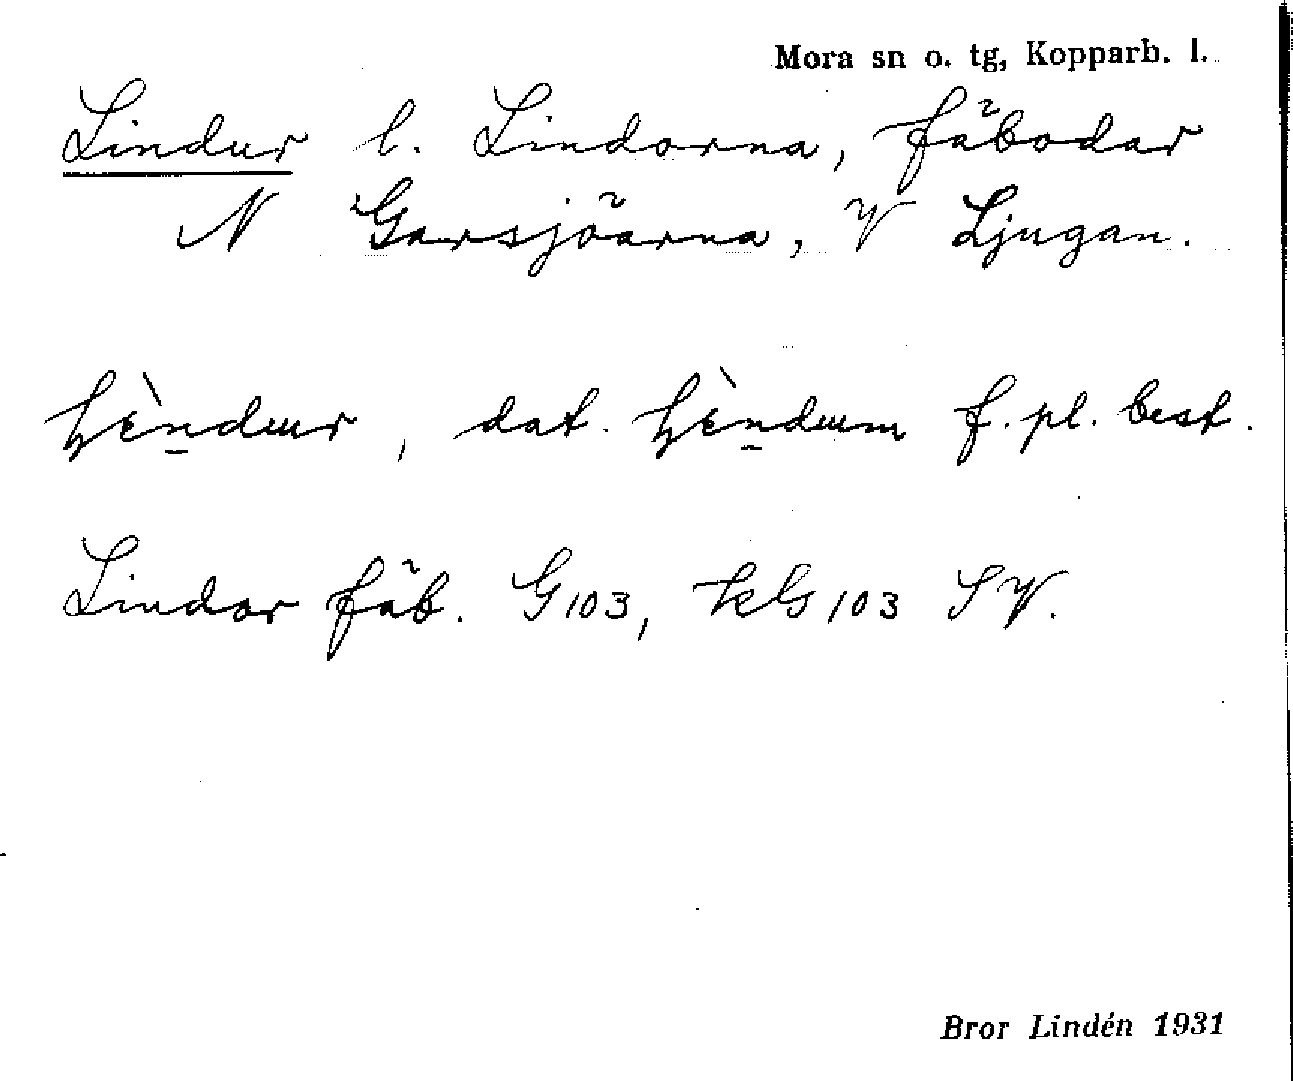 Mora sn o. tg, Kopparb. l.
Lindur l. Lindorna, fäbodar
N Garsjöarna, V Ljugan.
dat. f. pl. best.
Lindor fäb. G103, kG103 SV.
Bror Lindén 1931